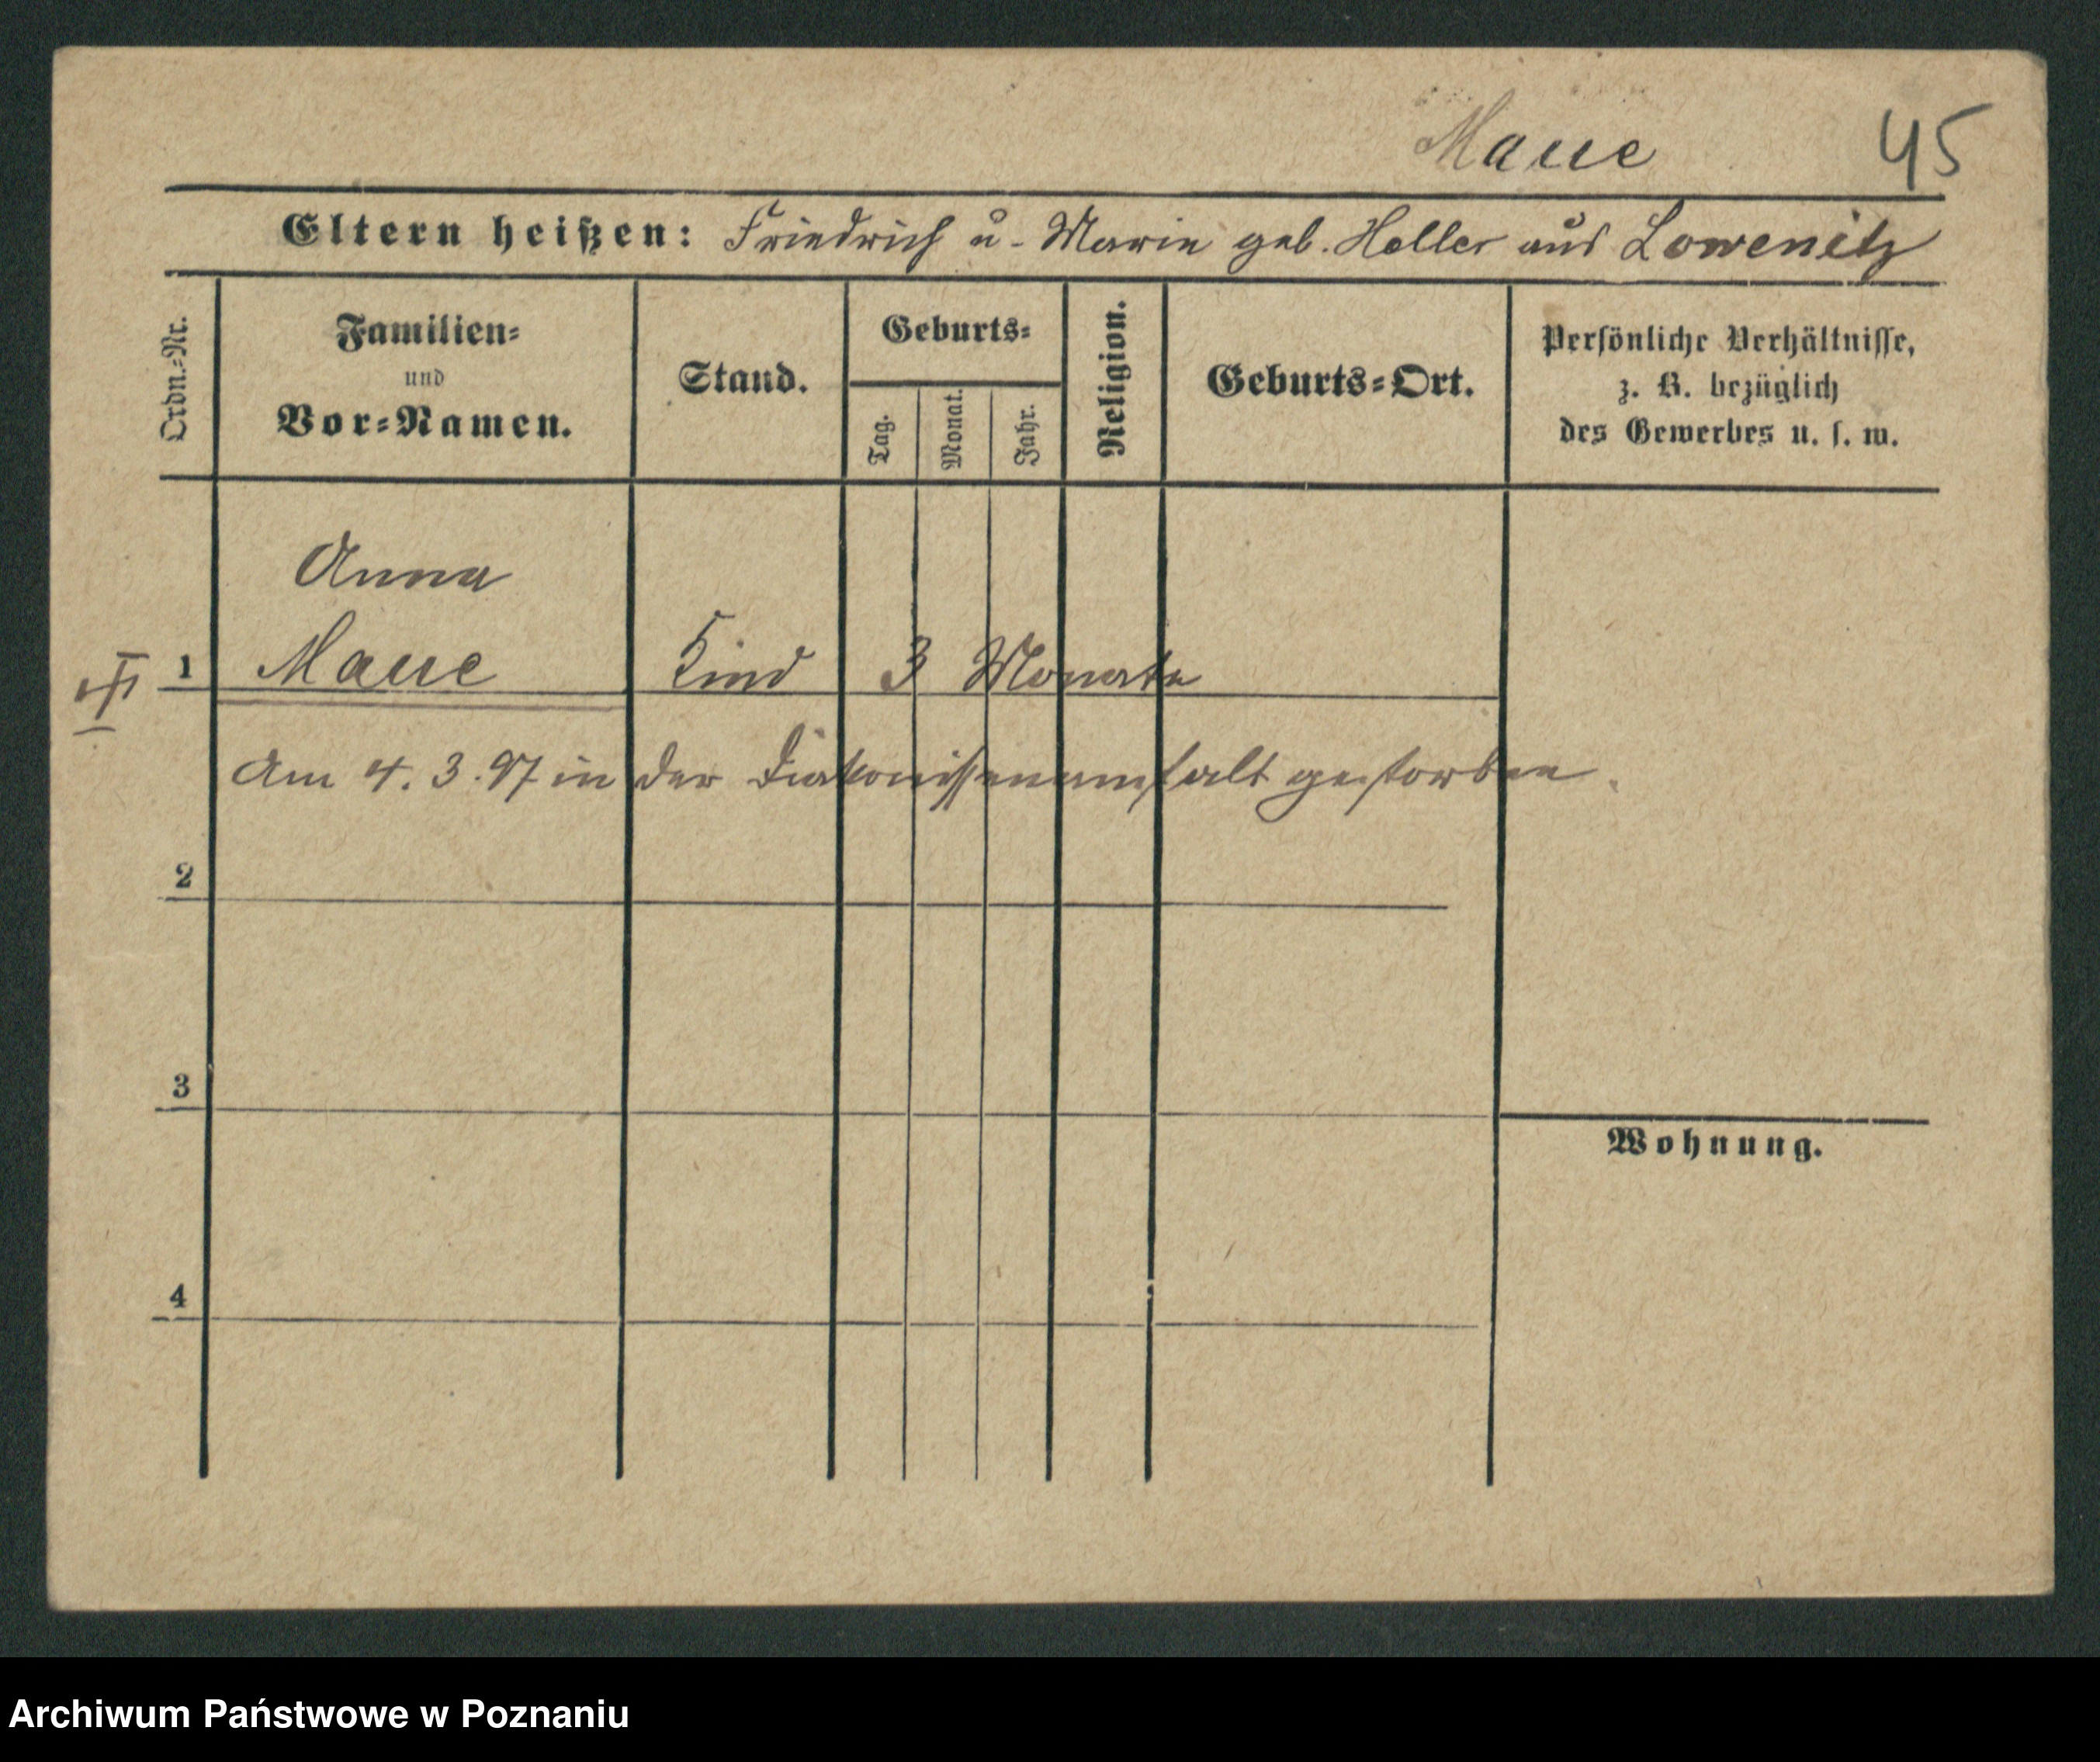 Maue 45
Eltern heißen: Friedrich u. Marie geb. Heller aus Lowenitz
Ordn.-Nr.
Familien-
und
Vor-Namen.
Stand.
Geburts-
Tag.
Monat.
Jahr.
Religion.
Geburts-Ort.
Persönliche Verhältnisse,
z. B. bezüglich
des Gewerbes u. s. w.
Anna
1 Maue Kind 3 Monate
Am 4. 3. 97 in der Diakonissenanstalt gestorben.
2
3
Wohnung.
4
Archiwum Państwowe w Poznaniu